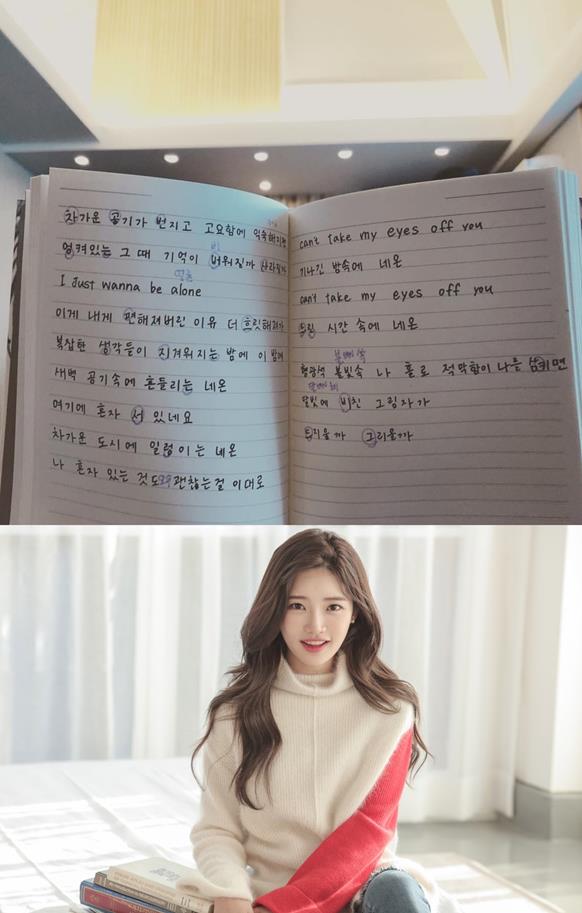 차가운 공기가 번지고 고요함에 익숙해지면
엉켜있는 그 때 기억이 버워질까 사라질까
I Just wanna be alone
이게 내게 편해져버린 이유 더 흐릿해져가
복잡한 생각들이 지겨워지는 밤에 이 밤에
새벽 공기속에 흔들리는 네온
여기에 혼자 서 있네요
차가운 도시에 일렁이는 네온
나 혼자 있는 것도 괜찮은걸 이대로
can't take my eyes off you
기나긴 밤속에 네온
can't take my eyes off you
흐린 시간 속에 네온
형광색 불빛속 나 홀로 적막함이 나를 삼키면
달빛에 비친 그림자가
흐려질까
그리울까